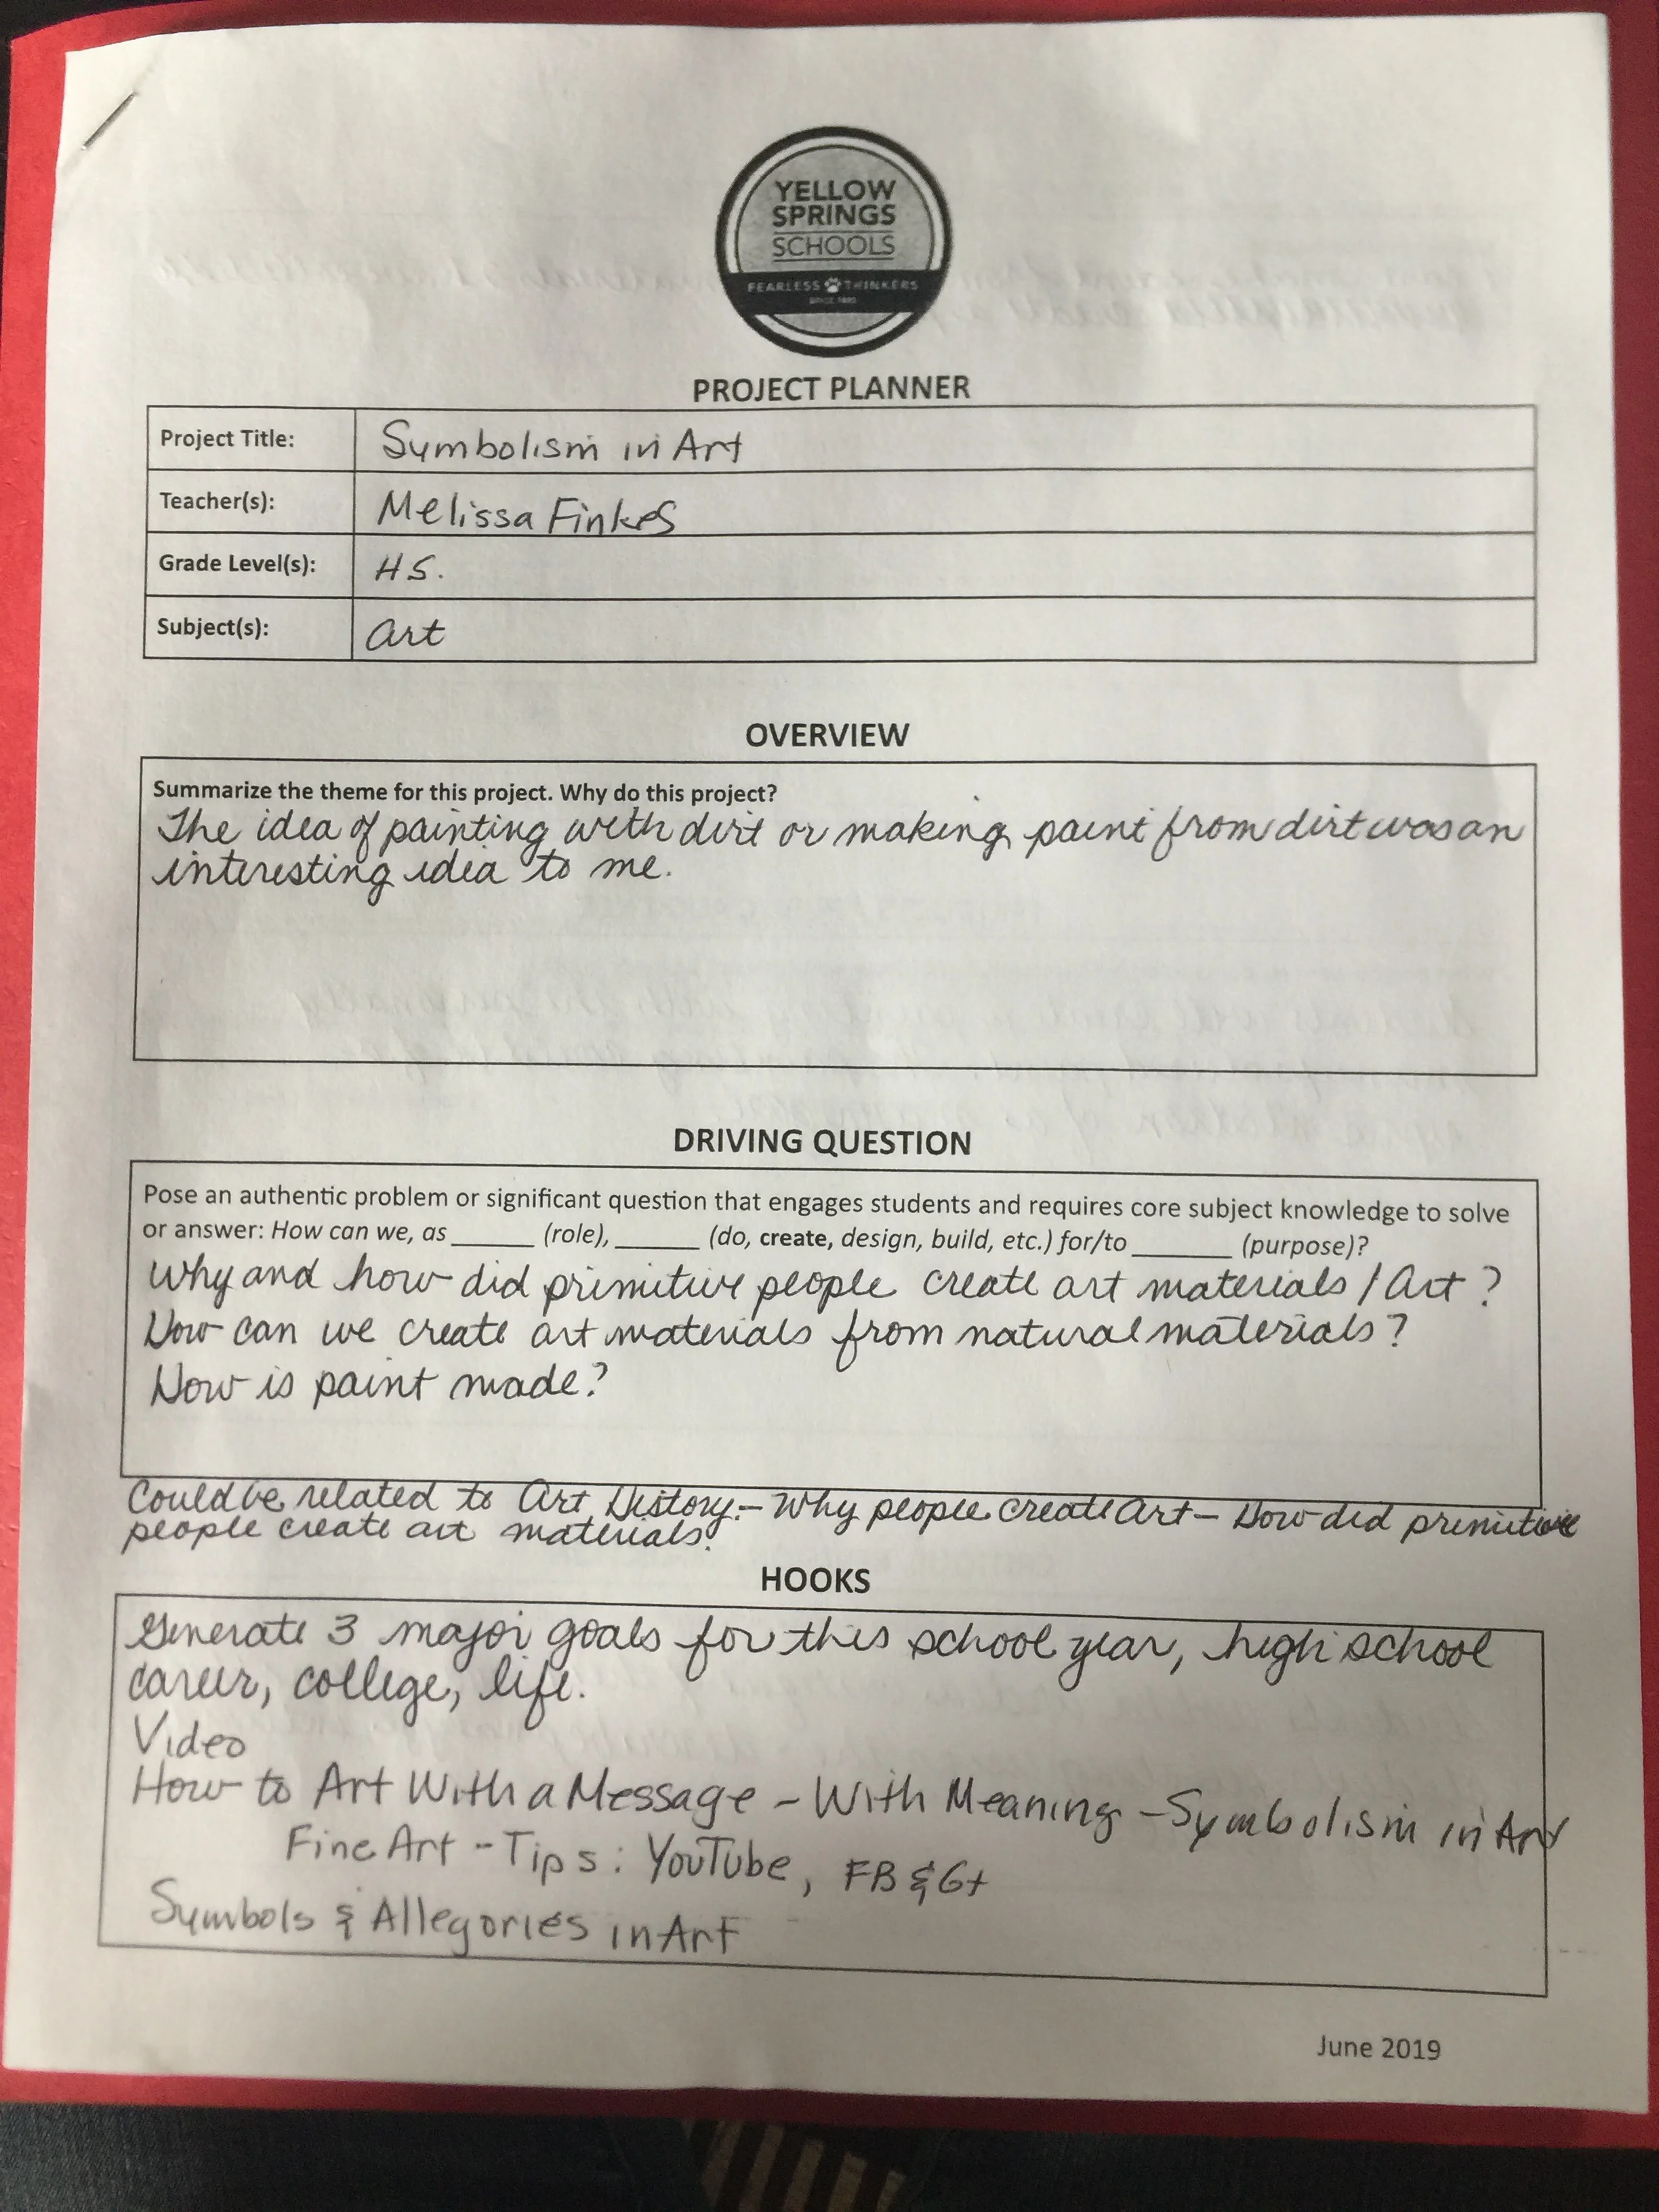 YELLOW
SPRINGS
SCHOOLS
FEARLESS THINKERS
PROJECT PLANNER
Project Title: Symbolism in Art
Teacher(s): Melissa Finkes
Grade Level(s): H S.
Subject(s): Art
OVERVIEW
Summarize the theme for this project. Why do this project?
The idea of painting with dirt or making paint from dirt was an
interesting idea to me.
DRIVING QUESTION
Pose an authentic problem or significant question that engages students and requires core subject knowledge to solve
or answer: How can we, as ______ (role), ______ (do, create, design, build, etc.) for/to _______ (purpose)?
Why and how did primitive people create art materials / Art?
How can we create art materials from natural materials?
How is paint made?
Could be related to Art History - Why people create Art - How did primitive
people create art materials?
HOOKS
Generate 3 major goals for this school year, high school
career, college, life.
Video
How to Art With a Message - With Meaning - Symbolism in Art
Fine Art - Tips: YouTube, FB & G+
Symbols & Allegories in Art
June 2019